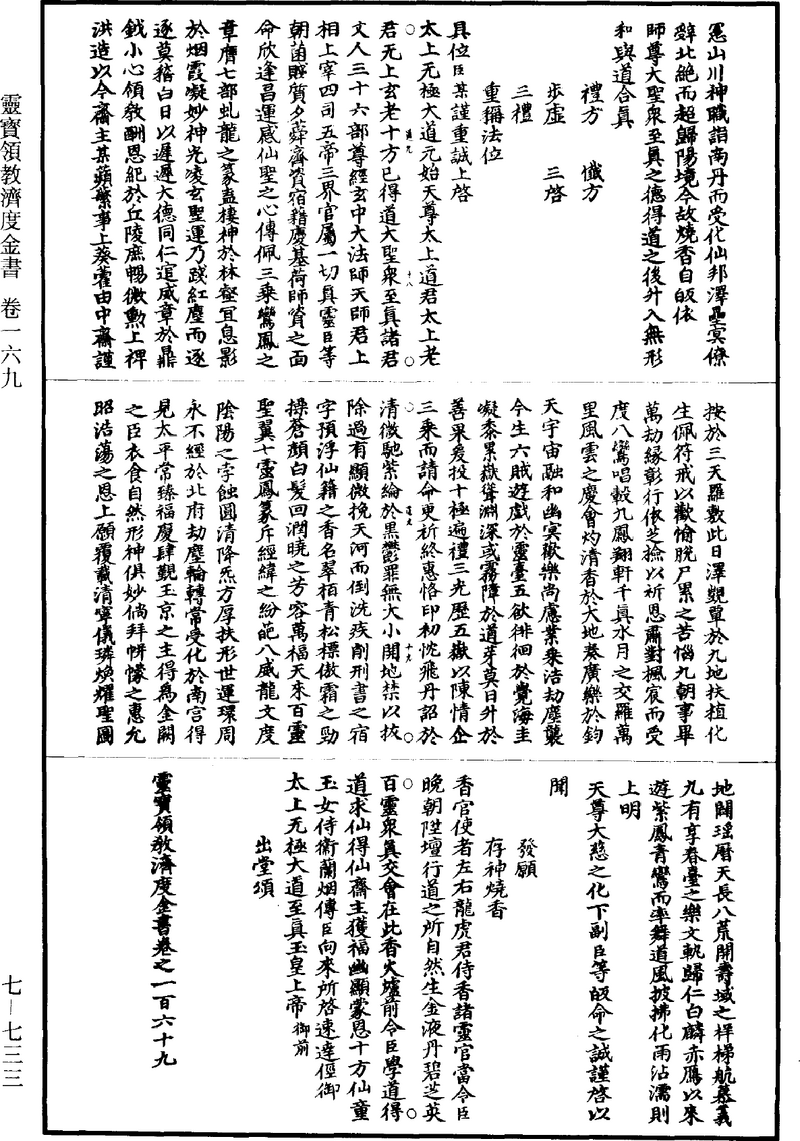 靈寶領教濟度金書 卷一六九
七—七三三
冤山川神職詣南丹而受化仙邦澤曁冥僚
辭北絶而超歸陽境今故燒香自皈依
師尊大聖衆至眞之德得道之後升入無形
和與道合眞
禮方 懺方
步虛 三啓
三禮
重稱法位
具位臣某謹重誠上啓
太上无極大道元始天尊太上道君太上老
君无上玄老十方已得道大聖衆至眞諸君
丈人三十六部尊經玄中大法師天師君上
相上宰四司五帝三界官屬一切眞靈臣等
朝菌賤質夕蕣齊資宿藉慶基荷師資之面
命欣逢昌運感仙聖之心傳佩三乘鸞鳳之
章膺七部虬龍之篆盍棲神於林壑宜息影
於烟霞凝妙神光凌玄聖運乃踐紅塵而逐
逐莫稽白日以遲遲大德同仁逭威章於鼎
鉞小心領敎酬恩紀於丘陵庶暢微勳上裨
洪造以今齋主某蘋蘩事上葵藿由中齋謹
按於三天羅敷此日澤覬單於九地扶植化
生佩符戒以歡愉脫尸累之苦惱九朝事畢
萬劫緣彰行依芝檢以祈恩肅對楓宸而受
度八鸞唱轂九鳳翔軒千眞水月之交羅萬
里風雲之慶會灼清香於大地奏廣樂於鈞
天宇宙融和幽冥歡樂尚慮業乘浩劫塵襲
今生六賊遊戯於靈臺五欲徘徊於覺海圭
凝黍累嶽聳淵深或霧障於道芽莫日升於
善果爰投十極遍禮三光歷五嶽以陳情企
三乘而請命更祈終惠恪印初忱飛丹詔於
清微馳紫綸於黑鬱罪無大小開地禁以抜
除過有顯微挽天河而倒洗疾削刑書之宿
字預浮仙籍之香名翠栢青松標傲霜之勁
操蒼顏白髮回潤曉之芳容萬福天來百靈
聖翼七靈鳳篆斥經緯之紛葩八威龍文度
陰陽之孛蝕圓清降炁方厚扶形世運環周
永不經於北府劫塵輪轉常受化於南宫得
見太平常臻福慶肆覲玉京之主得爲金闕
之臣衣食自然形神俱妙倘拜帡幪之惠允
昭浩蕩之恩上願覆載清寧儀璘煥耀聖圖
地闢瑶曆天長八荒開壽域之梓梯航慕義
九有享春臺之樂文軌歸仁白麟赤鴈以來
遊紫鳳青鸞而率舞道風披拂化雨沾濡則
上明
天尊大慈之化下副臣等皈命之誠謹啓以
聞
發願
存神燒香
香官使者左右龍虎君侍香諸靈官當令臣
晚朝陞壇行道之所自然生金液丹碧芝英
百靈衆眞交會在此香火爐前令臣學道得
道求仙得仙齋主獲福幽顯蒙恩十方仙童
玉女侍衞蘭烟傳臣向來所啓速達徑御
太上无極大道至眞玉皇上帝御前
出堂頌
靈寶領敎濟度金書卷之一百六十九